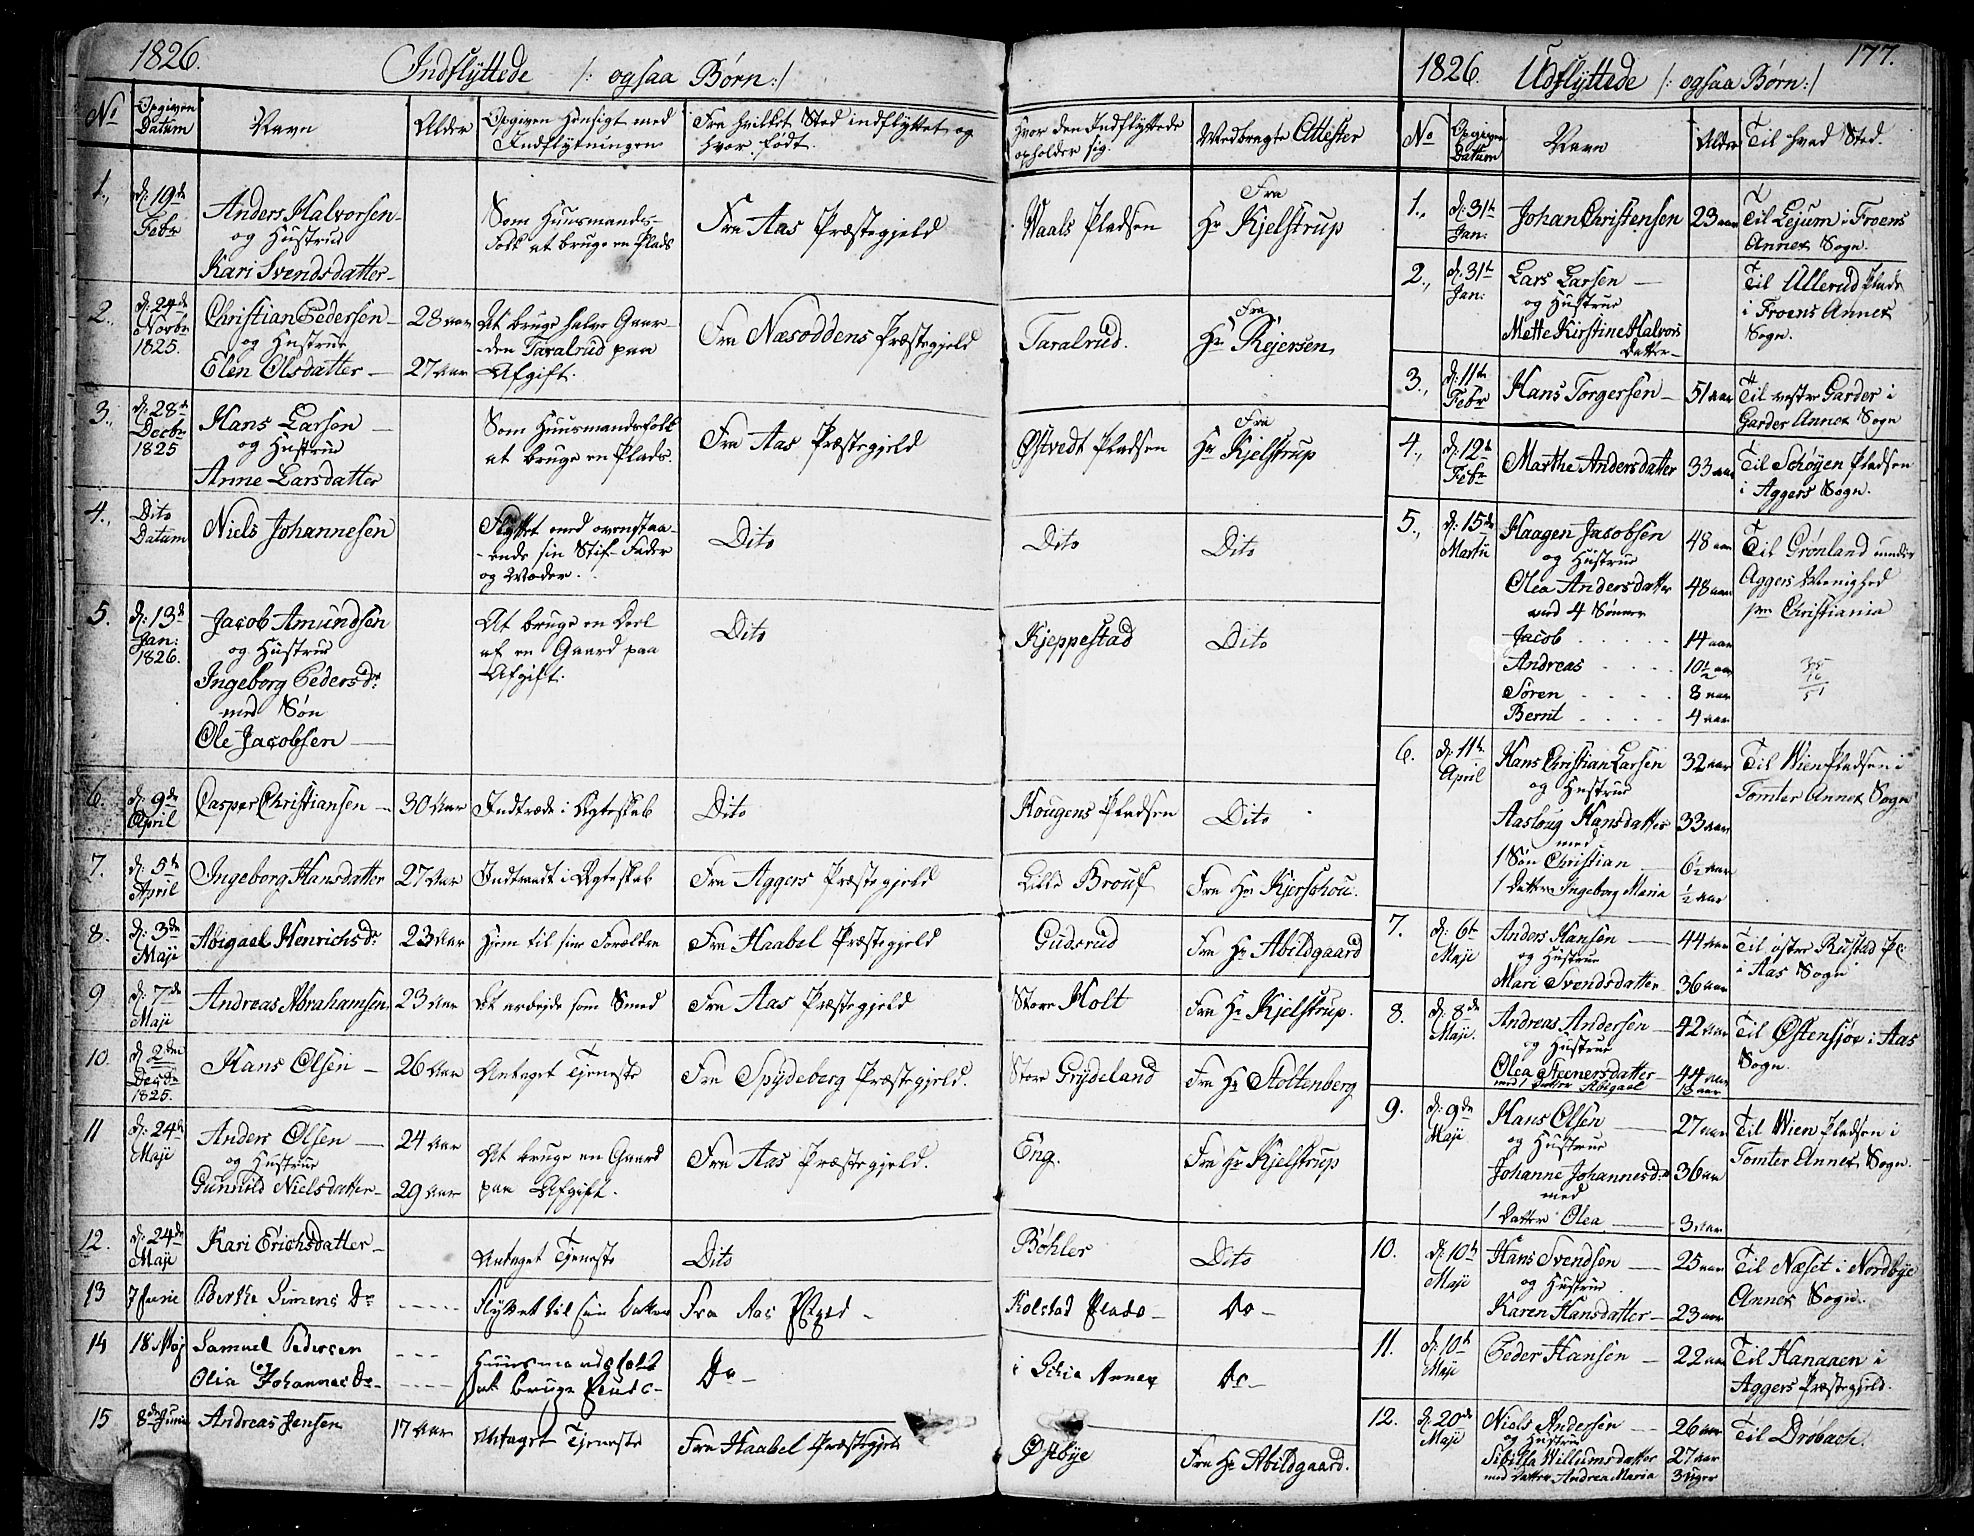 1826.
Indflyttede /: ogsaa Børn:/
No
Opgiven Datum
Navn
Alder
Opgiven Hensigt med Indflytningen
Fra hvilket Sted indflyttet og hvor født.
Hvor den Indflyttede opholder sig.
Medbragte Attester
1., d: 19de Febr
Anders Halvorsen
og Hustrue
Kari Svendsdatter
Som Huusmands-
Folk at bruge en Plads
Fra Aas Præstegjeld
Waals Pladsen
Fra
Hr Kjelstrup
2., d: 24de Novbr 1825.
Christian Pedersen 28 aar
og Hustrue
Elen Olsdatter 27 Aar
At bruge halve Gaar-
den Taralrud paa
Afgift.
Fra Næsoddens Præstegjeld
Taralrud.
Fra
Hr Rejersen
3., d: 28de Decbr 1825
Hans Larsen
og Hustrue
Anne Larsdatter
Som Huusmandsfolk
at bruge en Plads.
Fra Aas Præstegjeld
Østvedt Pladsen
Fra
Hr Kjelstrup
4., Dito Datum
Niels Johannesen
Flyttet med ovenstaa-
ende sin Stif-Fader
og Moder.
Dito
Dito
Dito
5. d: 13de Jan: 1826.
Jacob Amundsen
og Hustrue
Ingeborg Pedersdr
med Søn
Ole Jacobsen
At bruge en Deel
af en Gaard paa
Afgift.
Dito
Kjeppestad
Dito
6. d: 9de April
Casper Christiansen 30 Aar
Indtræde i Ægteskab
Dito
Kougens Pladsen
Dito
7. d: 5te April
Ingeborg Hansdatter 27 Aar
Indtraadt i Ægteskab
Fra Aggers Præstegjeld
Lille
Fra Hr
8. d: 3de Maji
Abigael Henrichsdr 23 Aar
Hjem til sine Forældre
Fra Haabel Præstegjeld
Gudsrud
Fra Hr Abildgaard
9 d: 7de Maji
Andreas Abrahamsen 23 Aar
At arbeide som Smed
Fra Aas Præstegjeld
Store Holt
Fra Hr Kjelstrup.
10. d. 2den Decbr 1825.
Hans Olsen 26 Aar
Antaget Tjeneste
Fra Spydeberg Præstegjeld.
Store Grydeland
Fra Hr Stoltenberg
11 d: 24de Maji
Anders Olsen 24 Aar
og Hustrue
Gunnild Nielsdatter 29 Aar
At bruge en Gaard
paa Afgift.
Fra Aas Præstegjeld.
Eng.
Fra Hr Kjelstrup
12. d: 24de Maji
Kari Erichsdatter
Antaget Tjeneste
Dito
Bøhler
Dito
13 7 Junie
Berthe Simens Dr
Flyttet til sin Datter
Fra Aas
Kolstad Plads
Do
14 18 Maj
Samuel Pedersen
og
Olia Johannes Dr
Huusmandsfolk
at bruge
Do
i Annex
Do
15 8de Junie
Andreas Jensen 17 Aar
Antaget Tjeneste
Fra Haabel Præstegjeld
Østbye
Fra Hr Abildgaard.
177.
1826. Udflyttede /: ogsaa Børn:/
No
Opgiven Datum
Navn
Alder
Til hvad Sted.
1., d: 31te Jan:
Johan Christensen 23 aar
Til Lejum i Froens
Annex Sogn.
2., d: 31te Jan:
Lars Larsen
og Hustrue
Mette Kirstine Halvors
Datter
Til Ullerud Plads
i Froens Annex
Sogn.
3., d: 11te Febr
Hans Torgersen 51 aar
Til vestre Garder i
Garder Annex Sogn
4., d: 12te Febr
Marthe Andersdatter 33 aar
Til Schøyen Pladsen
i Aggers Sogn.
5., d: 15de Martii
Haagen Jacobsen 48 aar
og Hustrue
Olea Andersdatter 48 aar
med 4 Sønner
Jacob 14 aar
Andreas 10½ aar
Søren 8 aar
Bernt 4 aar
Til Grønland under
Aggers Menighed
pr Christiania
35
16
51
6. d: 11te April
Hans Christian Larsen 32 aar
og Hustrue
Aasloug Hansdatter 33 aar
med
1 Søn Christian 6½ aar
1 Datter Ingeborg Maria ½ aar
Til Wien Pladsen i
Tomter Annex Sogn
7. d: 6te Maji
Anders Hansen 44 aar
og Hustrue
Mari Svendsdatter 36 aar
Til østre Rustad Pl:
i Aas Sogn
8. d: 8de Maji.
Andreas Andersen 42 aar
og Hustrue
Olea Steenersdatter 44 aar
med 1 Datter Abigael 13 aar
Til Østensjøe i Aas
Sogn.
9. d: 9de Maji
Hans Olsen 27 aar
og Hustrue
Johanne Johannesdr 36 aar
med
1 Datter Olea 3 aar
Til Wien Pladsen i
Tomter Annex Sogn.
10. d: 10de Maji
Hans Svendsen 25 aar
og Hustrue
Karen Hansdatter 23 aar
Til Næset i Nordbye
Annex Sogn.
11. d: 10de Maji
Peder Hansen 22 aar
Til Hanaaen i
Aggers Præstegjeld.
12. d: 20de Maji
Niels Andersen 26 aar
og Hustrue
Sibilla Willumsdatter 27 aar
med Datter Andrea Maria 3 Uger
Til Drøbach.